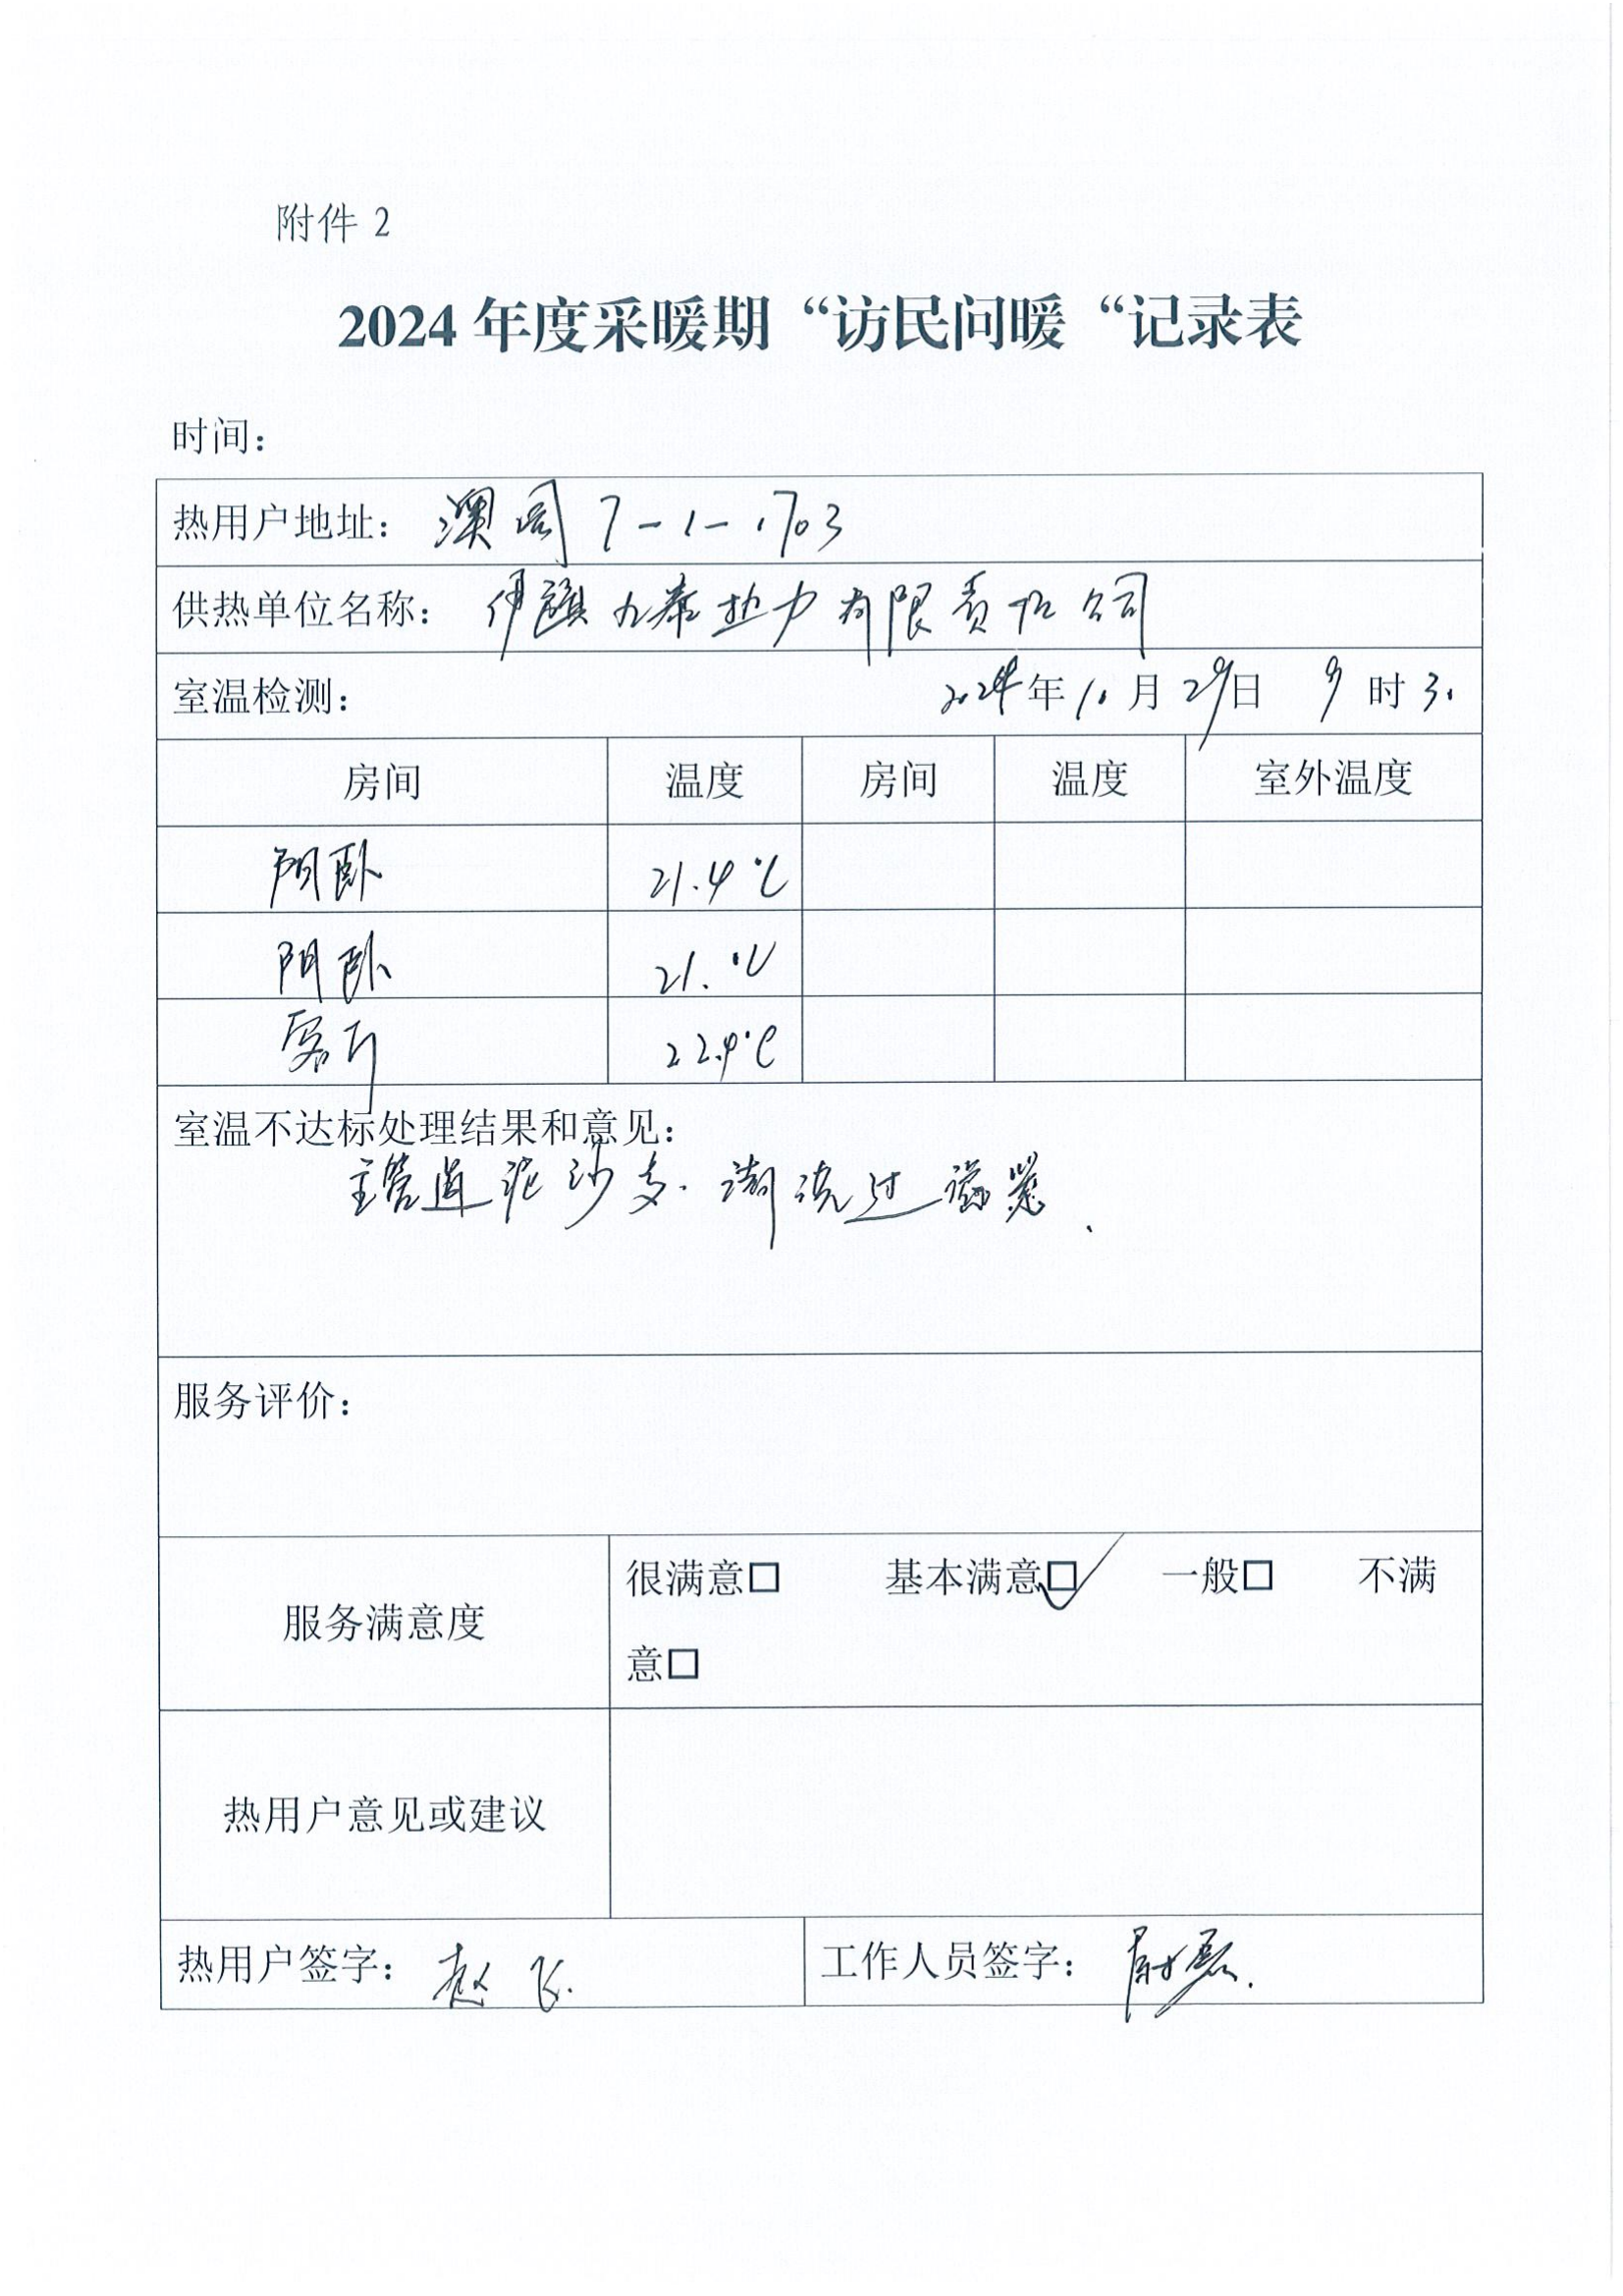 附件 2
2024 年度采暖期“访民问暖“记录表
时间：
热用户地址： 澳阁 7-1-1703
供热单位名称： 伊旗九泰热力有限责任公司
室温检测： 2024年10月29日 9时30
房间 温度 房间 温度 室外温度
阴卧 21.4℃
阳卧 21.℃
客厅 22.4℃
室温不达标处理结果和意见：
主管道泥沙多.清洗过滤器.
服务评价：
服务满意度
很满意□ 基本满意☑ 一般□ 不满
意□
热用户意见或建议
热用户签字： 赵飞. 工作人员签字： 尉磊.